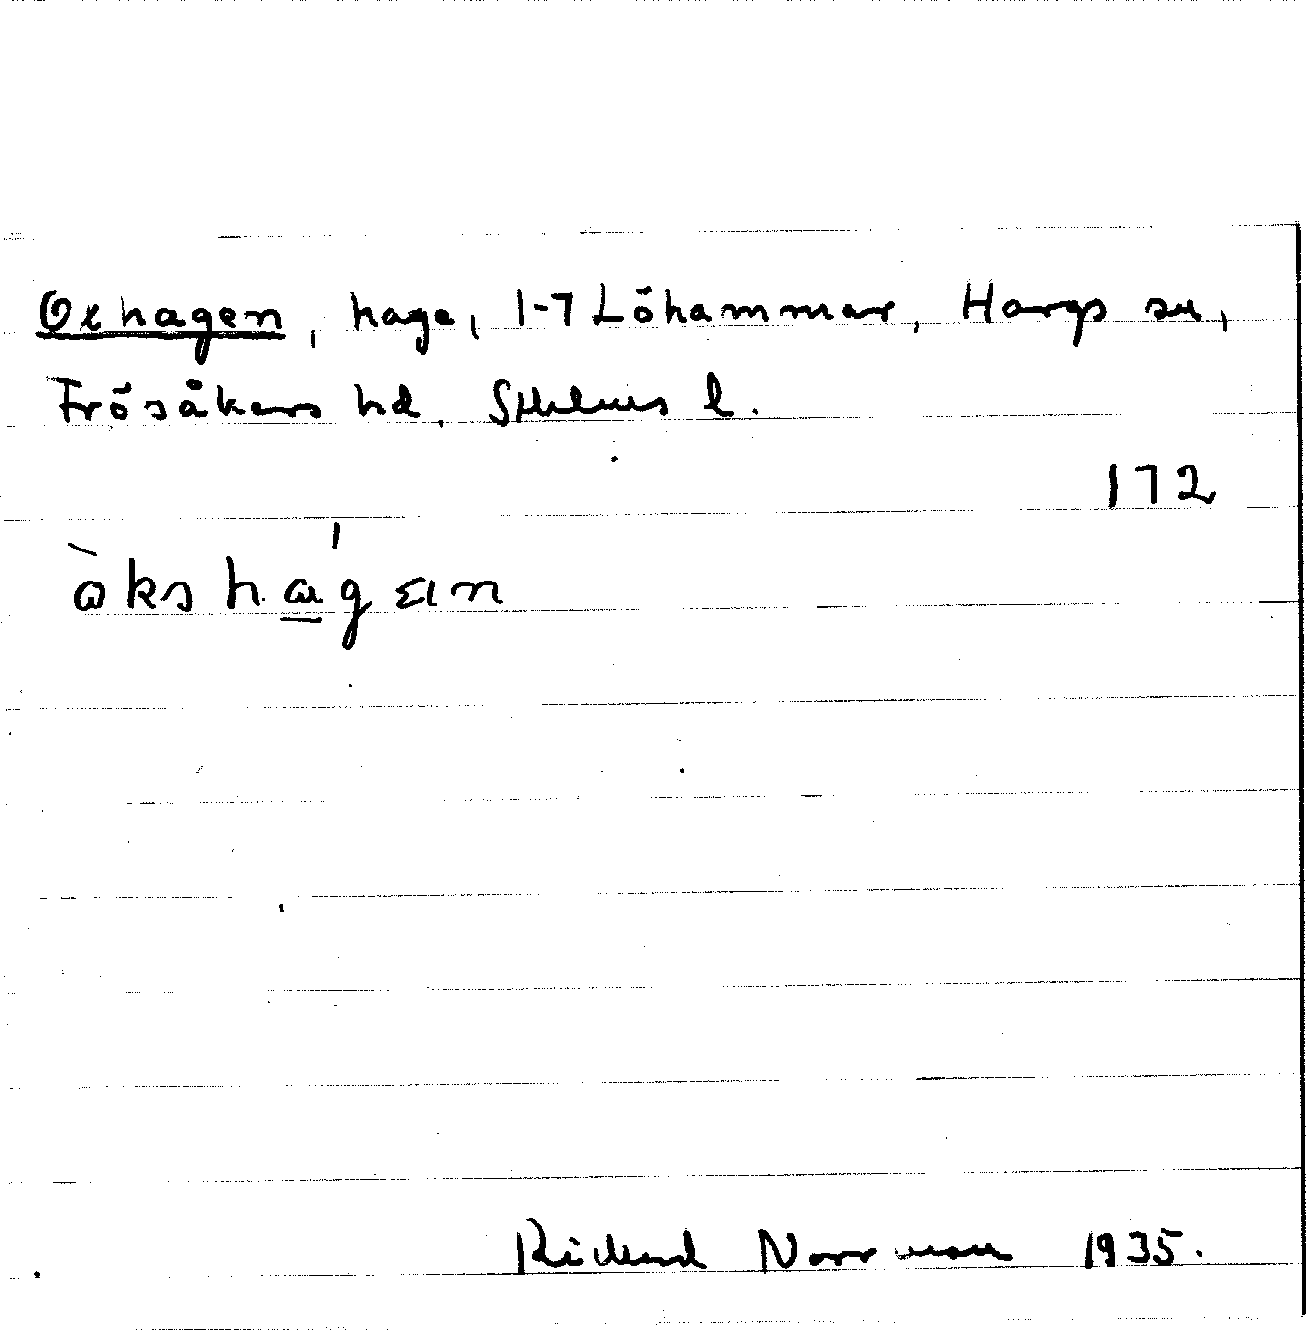 Oxhagen, hage, 1-7 Löhammar, Hargs sn,
Frösåkers hd. Sthlms l.
172
Richard Norrman 1935.